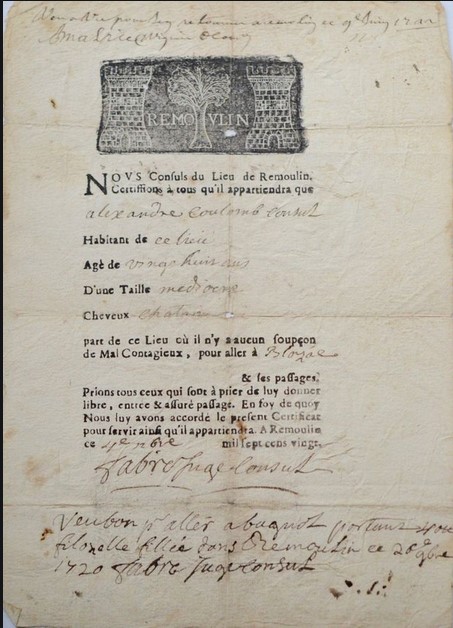 REMOVLIN
NOVS Consuls du Lieu de Remoulin,
Certiffions à tous qu'il appartiendra que
alexandre Coulomb Consul
Habitant de ce lieu
Agé de vingt huit ans
D'une Taille mediocre
Cheveux chatain
part de ce Lieu où il n'y a aucun soupçon
de Mal Contagieux, pour aller à
& ses passages.
Prions tous ceux qui sont à prier de luy donner
libre, entrée & assuré passage. En foy de quoy
Nous luy avons accordé le present Certificat
pour servir ainsi qu'il appartiendra. A Remoulin
ce 4e mil sept cens vingt.
fabre juge Consul
Veu bon p'aller a portant
filozelle fillée dans Remoulin ce 26e 9bre
1720 fabre juge Consul